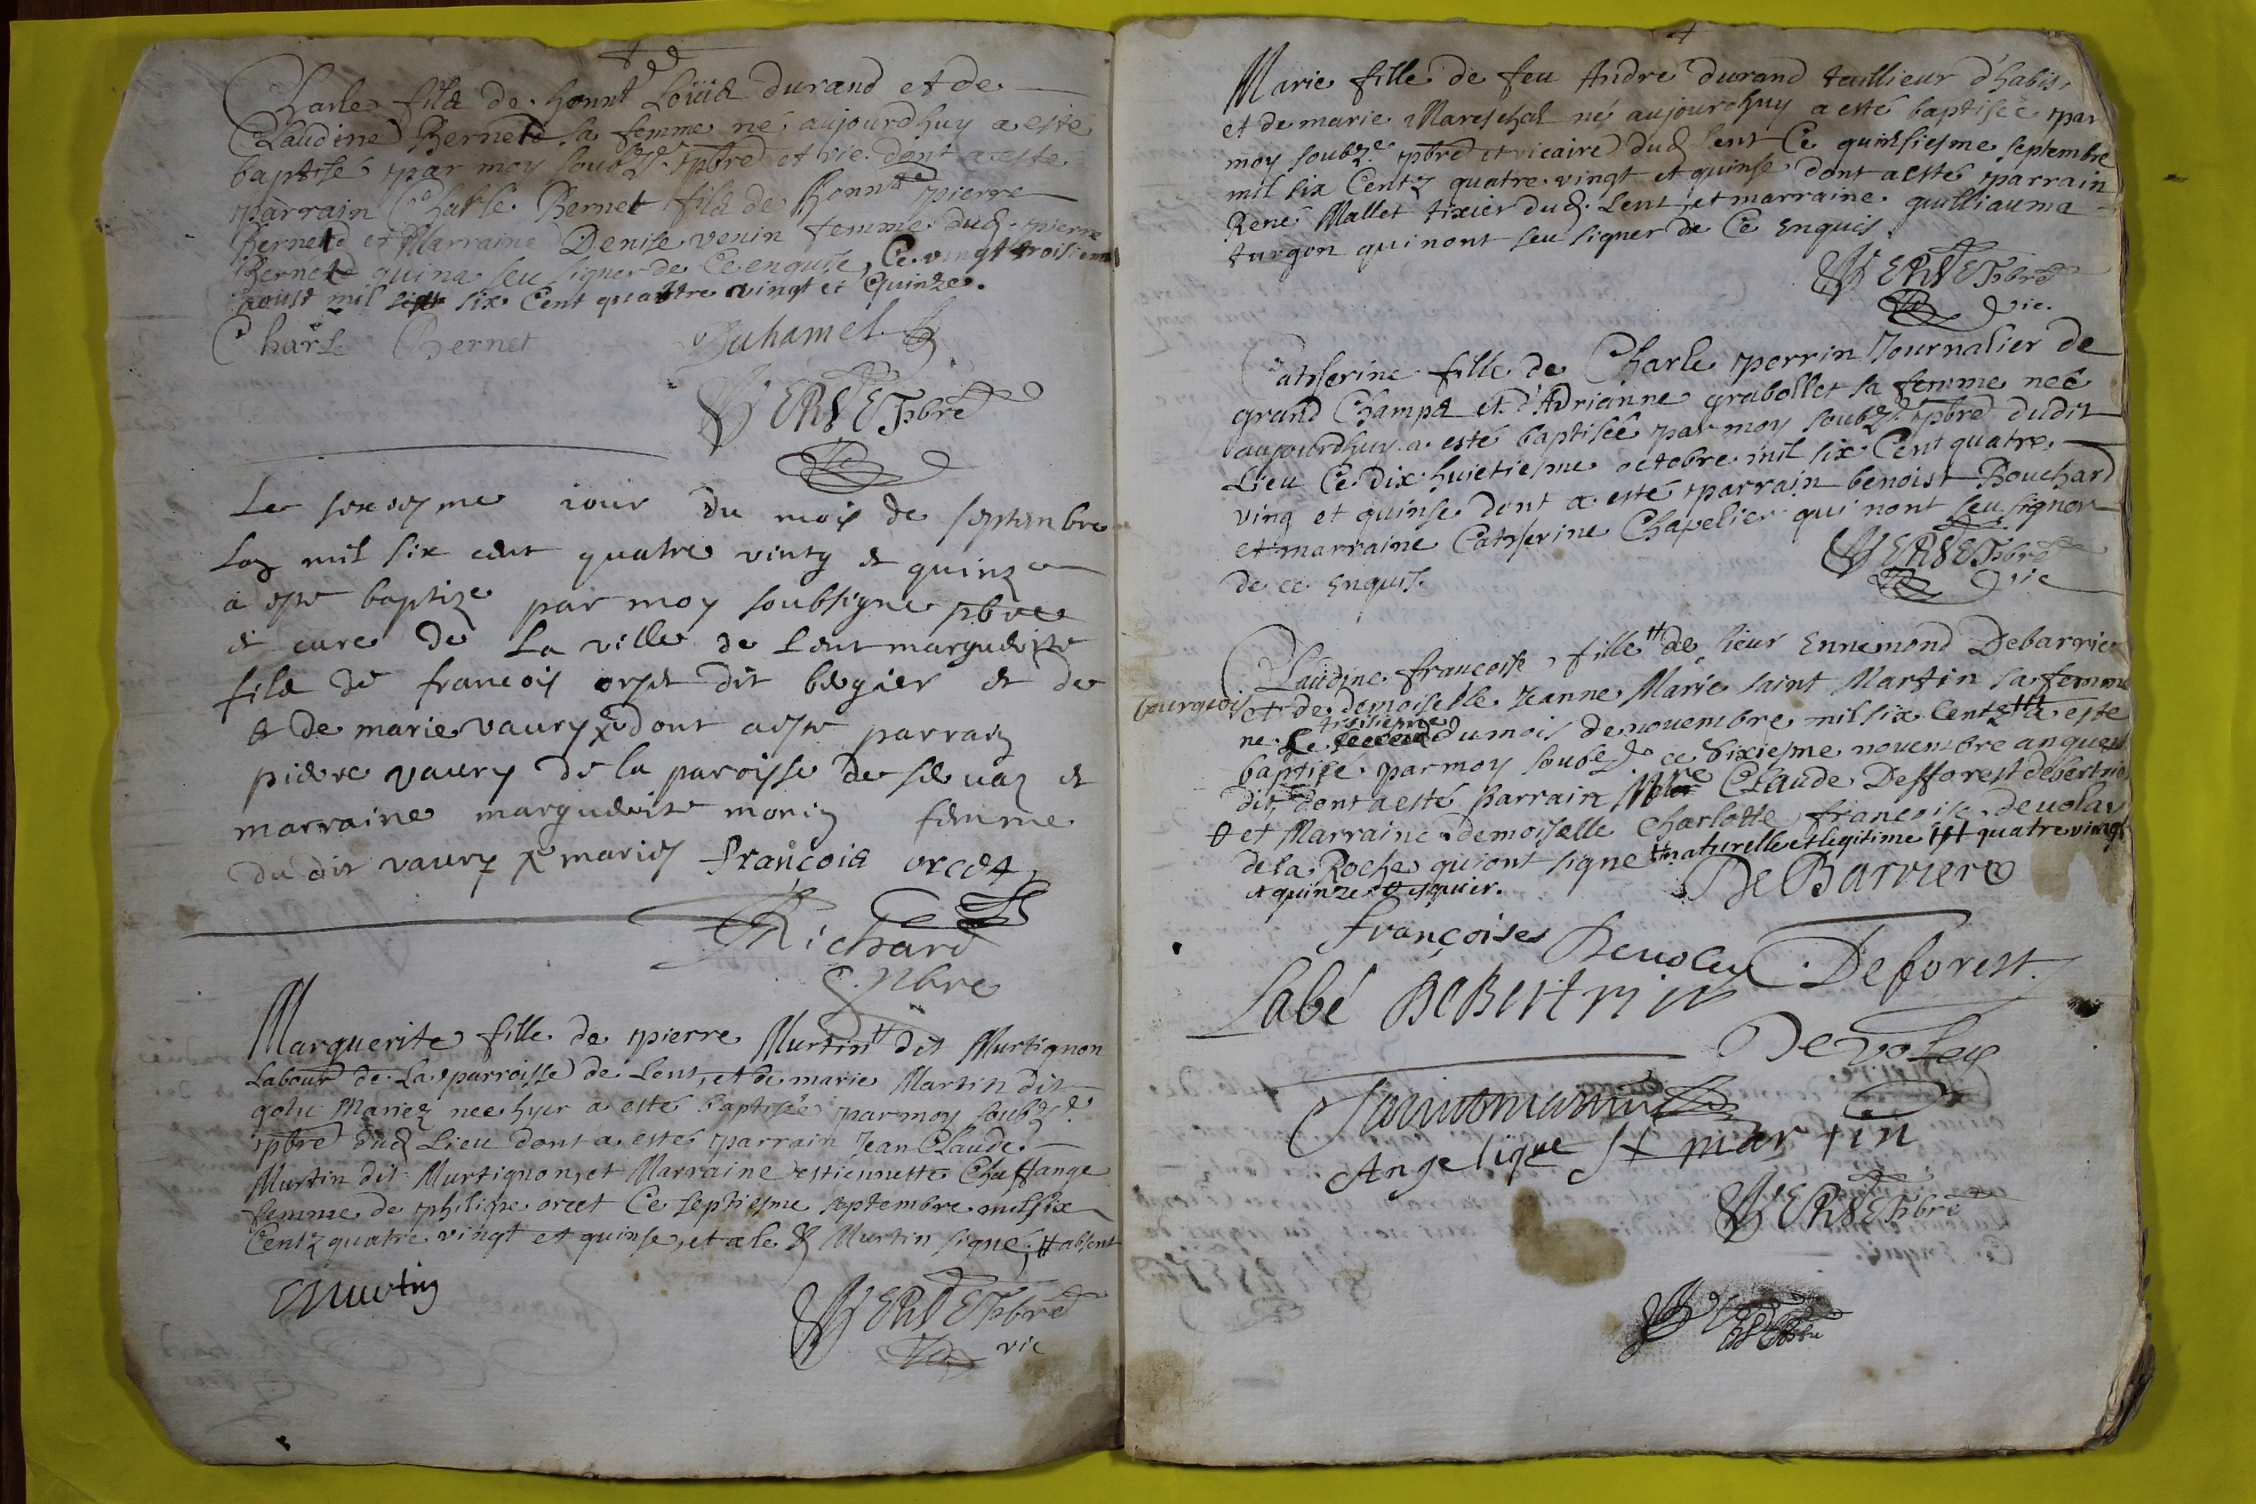 Charles fils de honnt Loüis durand et de
Claudine Bernet sa femme né aujourdhuy a esté
baptisé par moy soubzé pbre et vic. dont a esté
parrain Charle Bernet fils de honnte pierre
Bernet et Marraine Denise venin femme dud. pierre
Bernet qui na seu signer de ce enquise, Ce vingt troisiem
aoust mil six Cent quattre vingt et Quinze.
Charle Bernet Duhamel
VERSET pbre
Le jour du mois de septembre
mil six cent quatre vintz et quinze
a este baptize par moy soubsigne pbre
et cure de La ville de Lent marguerite
fils de francois orset dit bergier et de
et de marie vaury dont a este parrain
pierre vaury de la paroisse de et
marraine marguerite morin femme
du dit vaury françois orcet
Richard
C. pbre
Marguerite fille de pierre Murtin # dit Murtignon
Labour de La parroisse de Lent, et de marie Martin dit
Mariez nee hyer a esté baptisée par moy soubzé
pbre dud Lieu dont a esté parrain Jean Claude
Murtin dit Murtignon, et Marraine estiennette Chaffange
femme de philipe orcet Ce septiesme septembre mil six
Centz quatre vingt et quinse, et a le d Murtin signé, # absent
Murtin
VERSET pbre
vic
Marie fille de feu André durand taillieur d'habis,
et de marie Mareschal né aujourdhuy a esté baptisée par
moy soubzé pbre et vicaire dud Lent Ce quinsiesme septembre
mil six Centz quatre vingt et quinse dont a esté parrain
René Mallet tixier dud. Lent, et marraine guilliauma
turgon qui nont seu signer de Ce Enquis
VERSET pbre
vic.
Catherine fille de Charle perrin Journalier de
grand Champs et d'Adrianne grabollet sa femme neé
aujourdhuy a esté baptiseé par moy soubzé pbre dudit
Lieu Ce dix huietiesme octobre mil six Cent quatre
ving et quinse dont a esté parrain benoist Bouchard
et marraine Catherine Chapelier qui nont seu signer
de ce Enquis.
VERSET pbre
vic
Claudine françoise, fille # de sieur Ennemond Debarrier
bourgeois et de demoiselle Jeanne Marie saint Martin sa femme
troisieme
ne Le dumois denovembre mil six Centz ### a esté
baptisé par moy soubzé ce sixiesme novembre anque
dit, dont a esté parrain Mre Claude Defforest debertrie
et Marraine demoiselle Charlotte francoise devolay
de la Roche qui ont signé # naturelle et legitime ### quatre vingt
et quinze esquier.
De Barriere
françoises Devoley Deforest
Labé DeBertrie
Devoley
Saintmartin
Angelique St martin
VERSET pbre